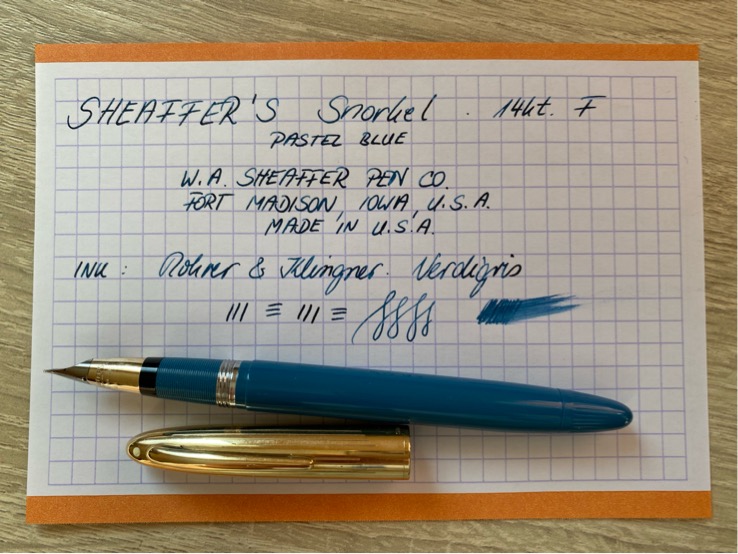 SHEAFFER'S Snorkel . 14kt. F
PASTEL BLUE
W.A. SHEAFFER PEN CO.
FORT MADISON, IOWA, U.S.A.
MADE IN U.S.A.
INK : Rohrer & Klingner. Verdigris